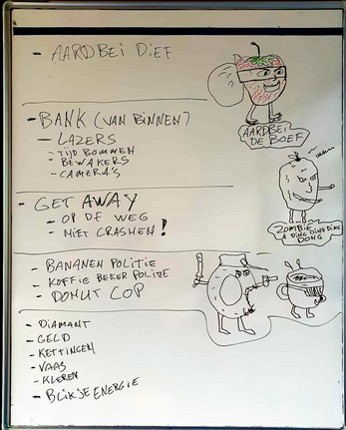 - AARDBEI DIEF
AARDBEI
DE BOEF
- BANK (VAN BINNEN)
- LAZERS
- TIJD BOMMEN
- BEWAKERS
- CAMERA'S
- GET AWAY
- OP DE WEG
- NIET CRASHEN!
ZOMBIE
DING DING DING
DONG
- BANANEN POLITIE
- KOFFIE BEKER POLITIE
- DONUT COP
- DIAMANT
- GELD
- KETTINGEN
- VAAS
- KLEREN
- BLIKJE ENERGIE